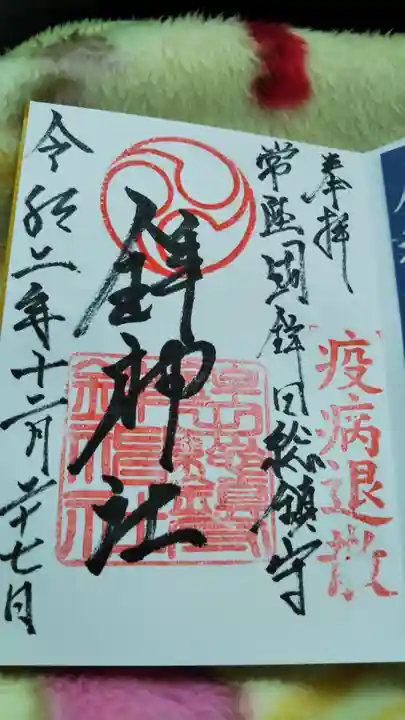 奉拝
疫病退散
常陸國鉾田総鎮守
鉾神社
令和二年十二月二十七日